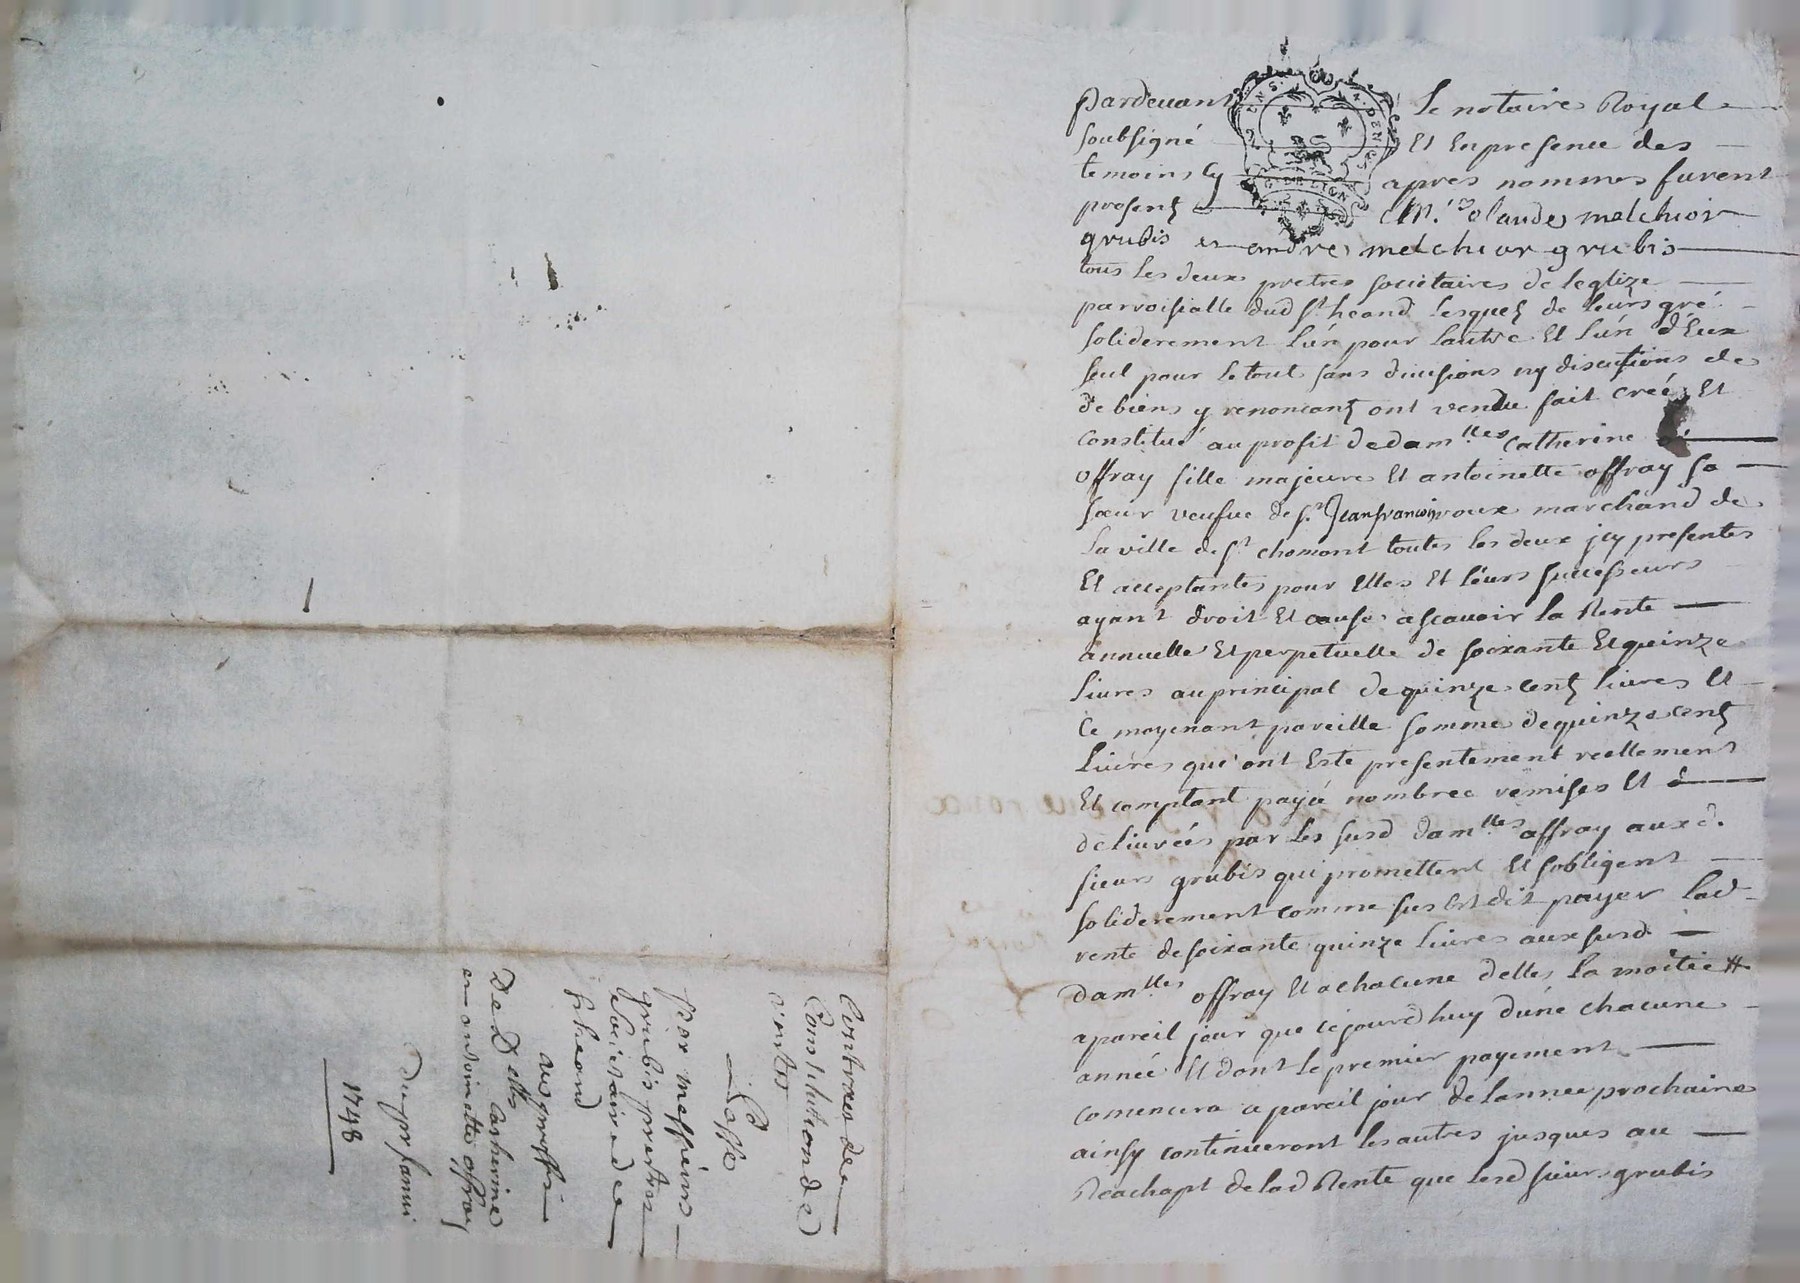 pardevant Le notaire Royal
soubsigné Et En presence des
temoins Cy apres nommes furent
presents Mrs Claude melchior
grubis et andre melchior grubis
tous Les deux pretres societaires de leglize
parroisialle dud St heand Lesquels de Leurs gré
soliderement L'un pour Lautre Et L'un d'Eux
seul pour Le tout sans divisions ny discutions de
de biens y renonçants ont vendu fait creé Et
constitué au profit de damlles Catherine
offray fille majeure Et antoinette offray sa
sœur veufve de sr Jean françois roux marchand de
La ville de St chomont toutes Les deux jcy presentes
Et acceptantes pour Elles Et Leurs successeurs
ayant droit Et cause ascavoir La Rente
annuelle Et perpetuelle de soixante Et quinze
Livres au principal de quinze cents Livres Et
Ce moyenant pareille somme de quinze cents
Livres qui ont Este presentement reellement
Et comptant payé nombree remises Et
delivrées par Les susd damlles offray aux d.
sieurs grubis qui promettent Et sobligent
soliderement comme sus Est dit payer Lad
rente de soixante quinze Livres aux susd
damlles offray Et a chacune delles La moitié
a pareil jour que cejourdhuy dune chacune
année Et dont Le premier payement
comencera a pareil jour de Lannee prochaine
ainsy continueront Les autres jusques au
Reachapt de lad Rente que Lesd sieurs grubis
Contrat de
Constitution de
rente
passé
par messieurs
grubis prestres
societaire de
st heand
au proffit
De Delles Catherine
et antoinette offray
1748